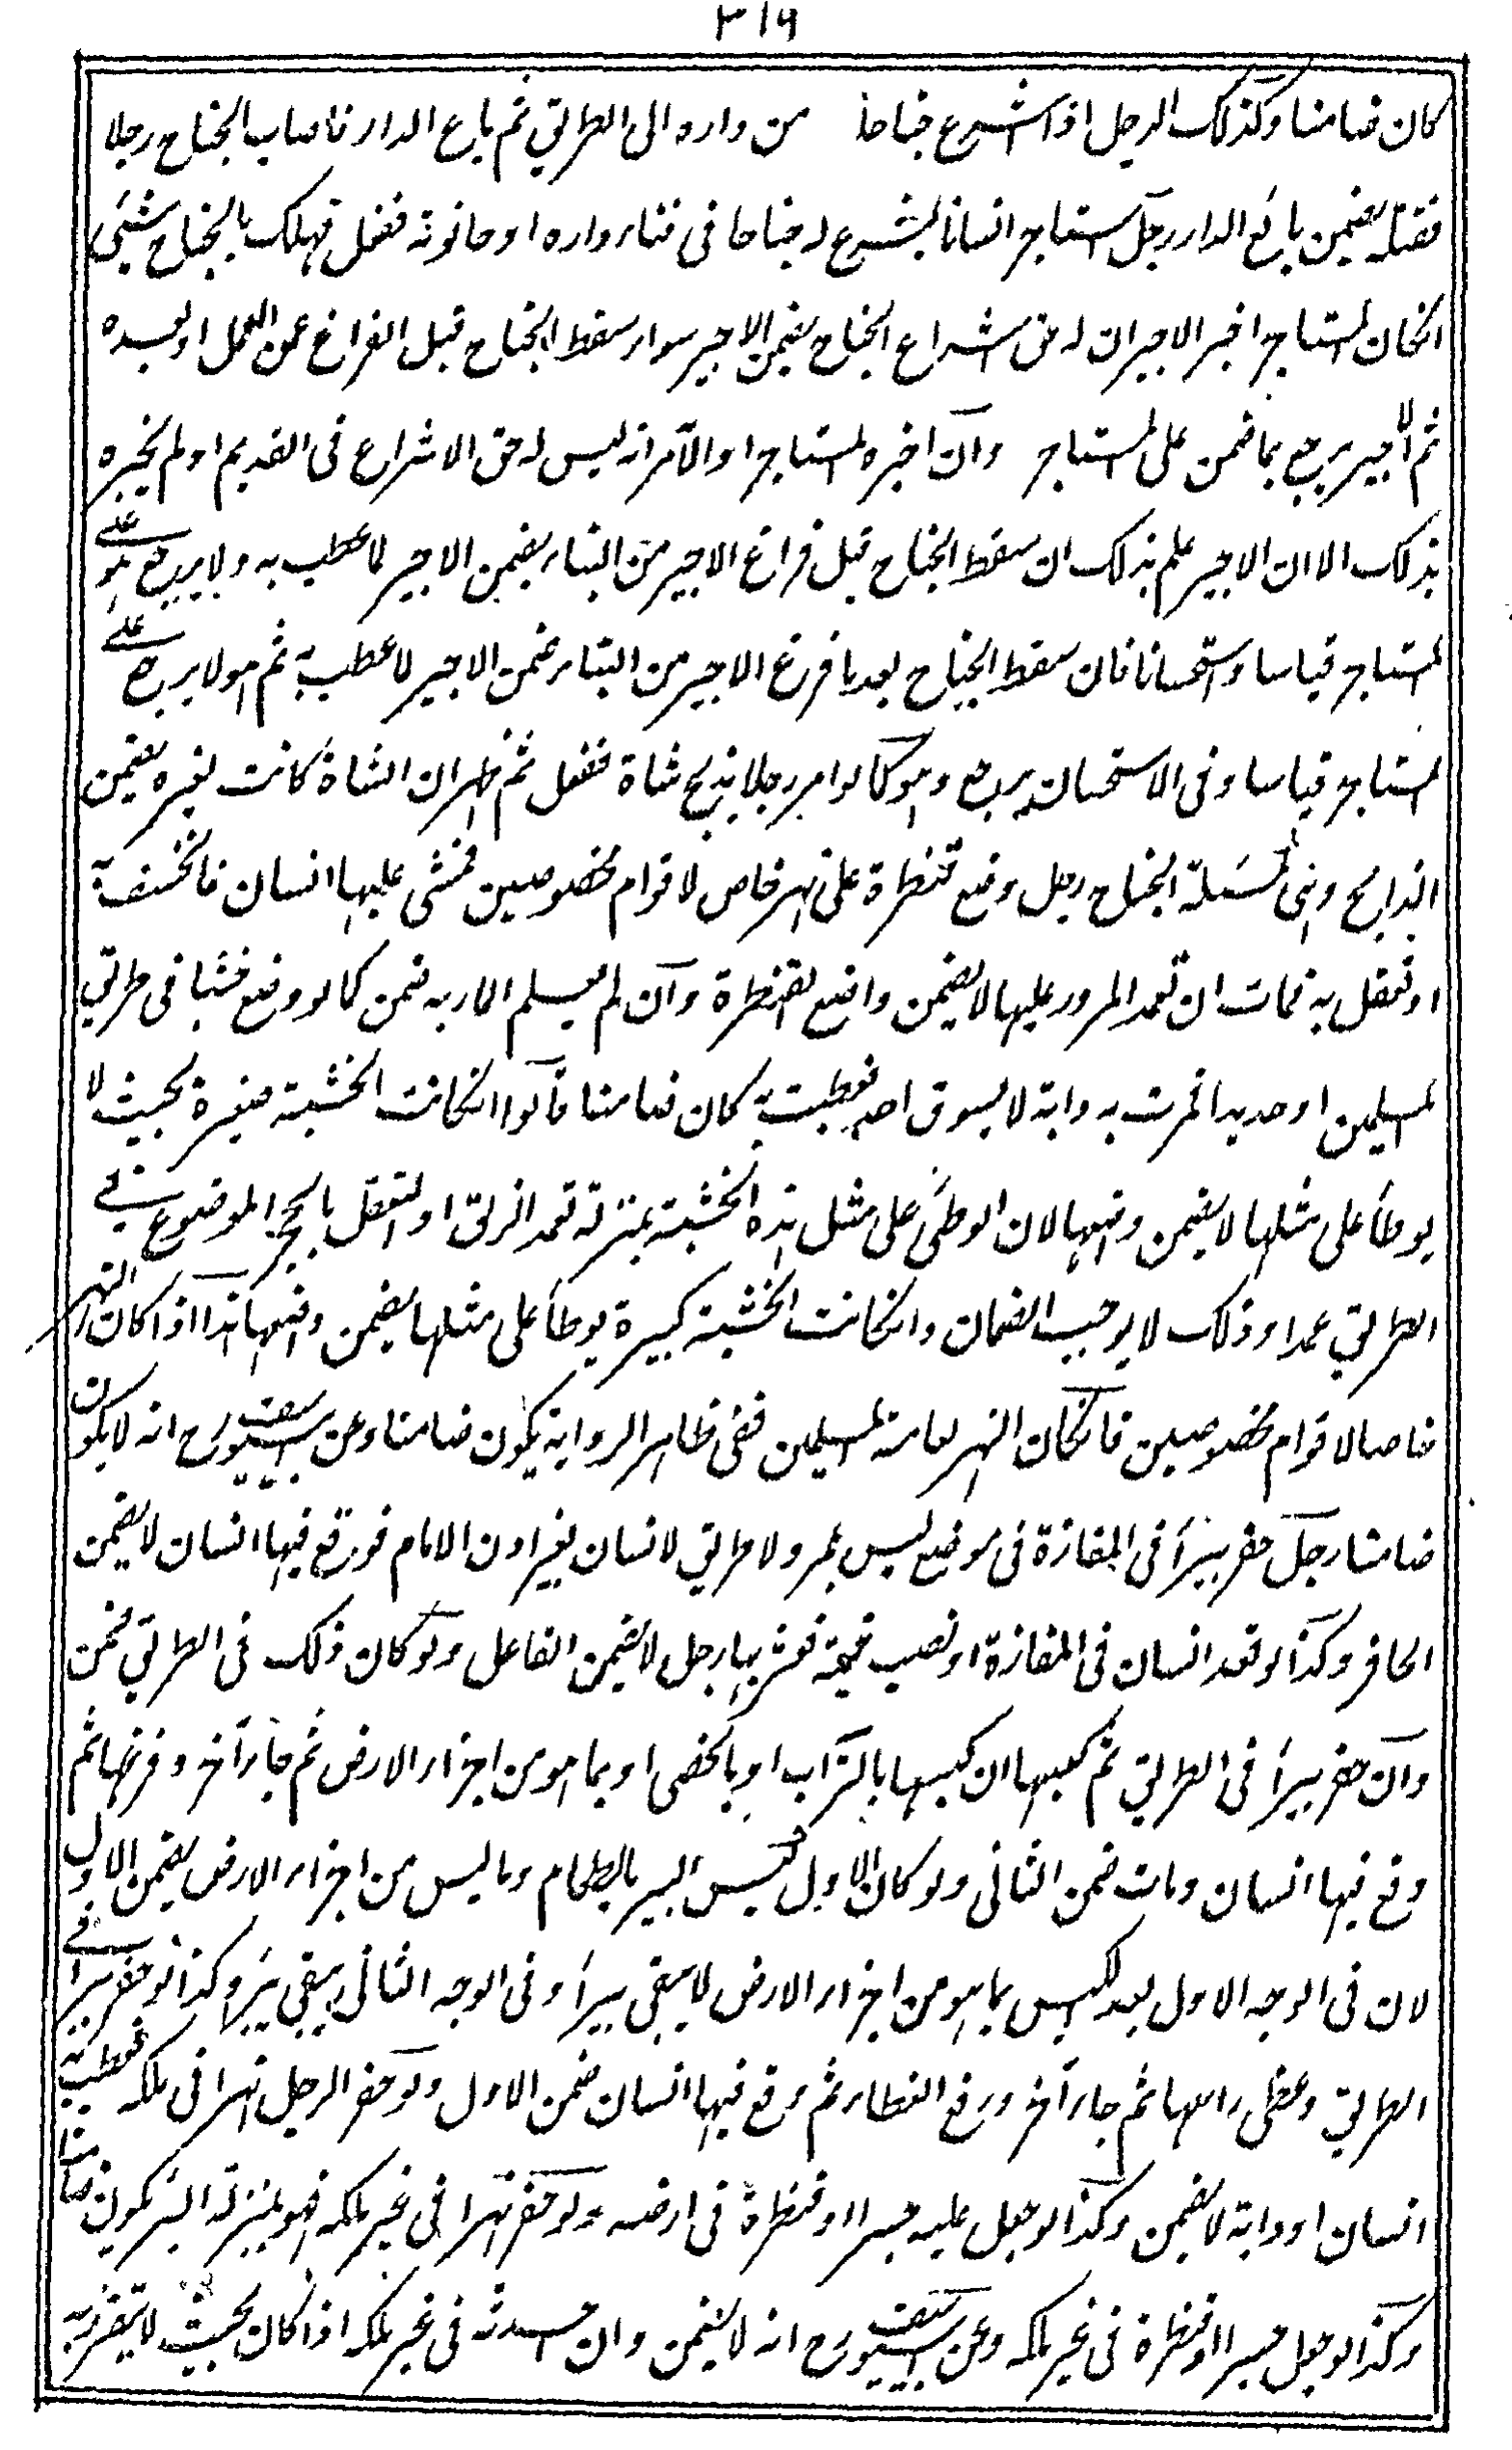 ٣١٩
كان ضامنا وكذلك الرجل اذا اشرع جناحا من داره الى الطريق ثم باع الدار فاصاب الجناح رجلا
فقتله يضمن بائع الدار رجل استاجر انسانا ليشرع له جناحا فى فناء داره او حانوته ففعل فهلك بالجناح شىء
انكان المستاجر اخبر الاجير ان له حق اشراع الجناح يضمن الاجير سواء سقط الجناح قبل الفراغ عن العمل او بعده
ثم الاجير يرجع بما ضمن على المستاجر وان اخبره المستاجر او الآمر انه ليس له حق الاشراع فى القديم او لم يخبره
بذلك الا ان الاجير علم بذلك ان سقط الجناح قبل فراغ الاجير من البناء يضمن الاجير لما عطب به ولا يرجع هو على
المستاجر قياسا واستحسانا فان سقط الجناح بعد ما فرغ الاجير من البناء ضمن الاجير لما عطب به ثم هو لا يرجع على
المستاجر قياسا وفى الاستحسان يرجع وهو كما لو امر رجلا بذبح شاة ففعل ثم ظهر ان الشاة كانت لغيره يضمن
الذابح وهى مسئلة الجناح رجل وضع قنطرة على نهر خاص لاقوام مخصوصين فمشى عليها انسان فانخسفت به
او تعقل به فمات ان تعمد المرور عليها لا يضمن واضع القنطرة وان لم يعلم المار به ضمن كما لو وضع خشبا فى طريق
المسلمين او حديدا فمرت به دابة لا يسوق احد فعطبت به كان ضامنا قالوا انكانت الخشبة صغيرة بحيث لا
يوطأ على مثلها لا يضمن واضعها لان الوطئ على مثل هذه الخشبة بمنزلة تعمد الزلق او التعقل بالحجر الموضوع فى
الطريق عمدا وذلك لا يوجب الضمان وانكانت الخشبة كبيرة يوطأ على مثلها يضمن واضعها هذا اذا كان النهر
خاصا لاقوام مخصوصين فانكان النهر لعامة المسلمين ففى ظاهر الرواية يكون ضامنا وعن ابى يوسف رح انه لا يكون
ضامنا رجل حفر بيرا فى المفازة فى موضع ليس بممر ولا طريق لانسان بغير اذن الامام فوقع فيها انسان لا يضمن
الحافر وكذا لو قعد انسان فى المفازة او نصب خيمة فعثر بها رجل لا يضمن الفاعل ولو كان ذلك فى الطريق ضمن
وان حفر بيرا فى الطريق ثم كبسها ان كبسها بالتراب او بالحصى او بما هو من اجزاء الارض ثم جاء آخر وفرغها ثم
وقع فيها انسان ومات ضمن الثانى ولو كان الاول كبس البير بالطعام وما ليس من اجزاء الارض يضمن الاول
لان فى الوجه الاول بعد الكبس بما هو من اجزاء الارض لا يبقى بيرا وفى الوجه الثانى يبقى بيرا وكذا لو حفر بيرا فى
الطريق وغطى راسها ثم جاء آخر ورفع الغطاء ثم وقع فيها انسان ضمن الاول ولو حفر الرجل نهرا فى ملكه فعطب به
انسان او دابة لا يضمن وكذا لو جعل عليه جسرا او قنطرة فى ارضه ولو حفر نهرا فى غير ملكه فهو بمنزلة البير يكون ضامنا
وكذا لو جعل جسرا او قنطرة فى غير ملكه وعن ابى يوسف رح انه لا يضمن وان احدثه فى غير ملكه اذا كان بحيث لا يتضرر به